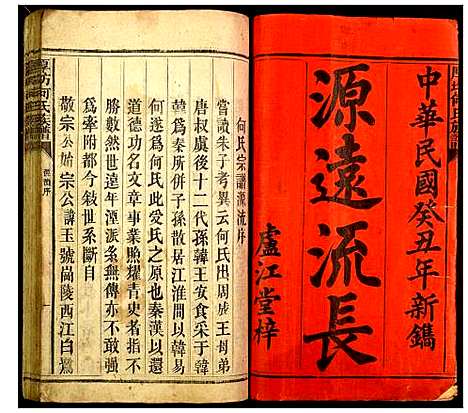 中華民國癸丑年新鐫
源遠流長
盧江堂梓
何氏宗譜源流序
嘗讀朱子考異云何氏出周成王母弟
唐叔虞後十二代孫韓王安食采于韓
韓爲秦所併子孫散居江淮間以韓易
何遂爲何氏此受氏之原也秦漢以還
道德功名文章事業照耀青史者指不
勝數然世遠年湮派系無傳今亦不敢
爲牽附都今敍世系斷自
敬宗公始宗公諱玉號尚陵西江白鷺